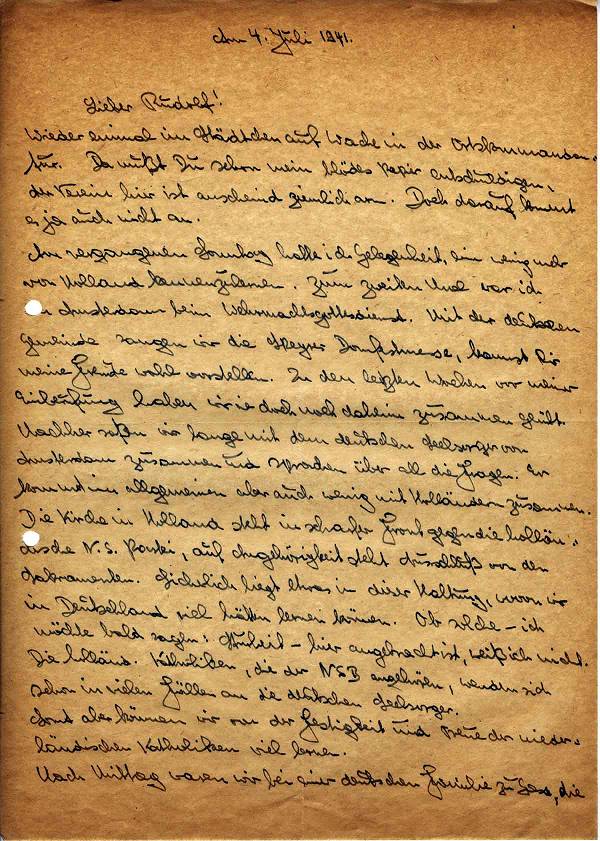 Am 4. Juli 1941.
Lieber Rudolf!
Wieder einmal im Städtchen auf Wache in der Ortskommandan-
tur. Da mußt Du schon mein blödes Papier entschuldigen,
der Verein hier ist anscheind ziemlich arm. Doch darauf kommt
es ja auch nicht an.
Am vergangenen Sonntag hatte ich Gelegenheit, ein wenig mehr
von Holland kennenzulernen. Zum zweiten Mal war ich
in Amsterdam beim Wehrmachtsgottesdienst. Mit der deutschen
Gemeinde sangen wir die Speyrer Domfestmesse, kannst Dir
meine Freude wohl vorstellen. In den letzten Wochen vor meiner
Einberufung haben wir sie doch noch daheim zusammen geübt.
Nachher saßen wir lange mit dem deutschen Seelsorger von
Amsterdam zusammen und sprachen über all die Fragen. Er
kommt im allgemeinen aber auch wenig mit Holländern zusammen.
Die Kirche in Holland steht in scharfer Front gegen die hollän-
dische N.S. Partei, auf Angehörigkeit steht Ausschluß von den
Sakramenten. Sicherlich liegt etwas in dieser Haltung, wovon wir
in Deutschland viel hätten lernen können. Ob solche – ich
möchte bald sagen: Sturheit – hier angebracht ist, weiß ich nicht.
Die holländ. Katholiken, die der NSB angehören, wenden sich
schon in vielen Fällen an die deutschen Seelsorger.
Sonst aber können wir von der Festigkeit und Treue der nieder-
ländischen Katholiken viel lernen.
Nach Mittag waren wir bei einer deutschen Familie zu Gast, die